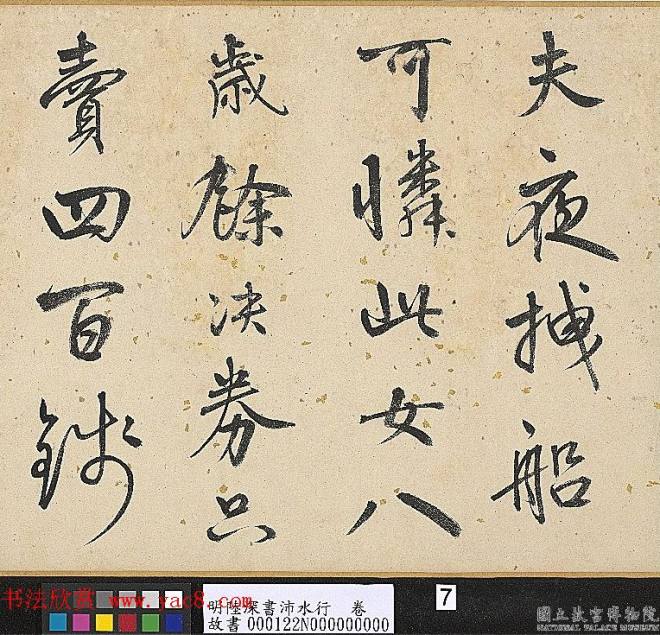 夫夜捕船
可憐此女八
歲餘决券只
賣四百錢
书法欣赏 www.yac8.com
明陸深書沛水行　卷
故書000122N000000000
7
國立故宮博物院
NATIONAL PALACE MUSEUM